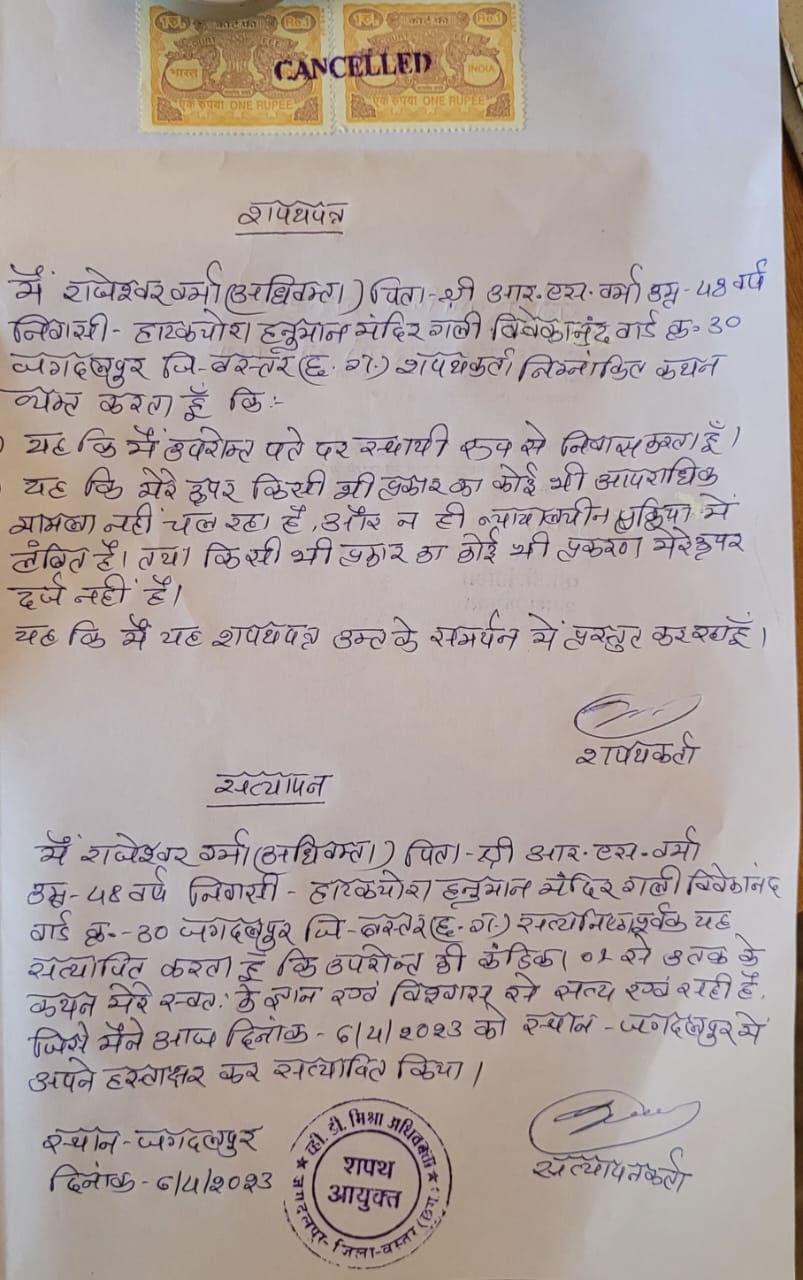 1रु. कोर्ट फी Re.1
COURT FEE
भारत
एक रुपया ONE RUPEE
1रु. कोर्ट फी Re.1
COURT FEE
INDIA
एक रुपया ONE RUPEE
CANCELLED
शपथपत्र
मैं राजेश्वर वर्मा (अधिवक्ता) पिता-श्री आर.एस. वर्मा उम्र-48 वर्ष
निवासी- हाटकचोरा हनुमान मंदिर गली विवेकानंद वार्ड क्र.30
जगदलपुर जि-बस्तर (छ.ग.) शपथकर्ता निम्नांकित कथन
व्यक्त करता हूँ कि:-
यह कि मैं उपरोक्त पते पर स्थायी रूप से निवास करता हूँ।
यह कि मेरे ऊपर किसी भी प्रकार का कोई भी आपराधिक
मामला नहीं चल रहा है, और न ही न्यायालयीन प्रक्रिया में
लंबित है। तथा किसी भी प्रकार का कोई भी प्रकरण मेरे ऊपर
दर्ज नहीं है।
यह कि मैं यह शपथपत्र उक्त के समर्थन में प्रस्तुत कर रहा हूँ।
शपथकर्ता
सत्यापन
मैं राजेश्वर वर्मा (अधिवक्ता) पिता-श्री आर.एस. वर्मा
उम्र-48 वर्ष निवासी- हाटकचोरा हनुमान मंदिर गली विवेकानंद
वार्ड क्र.-30 जगदलपुर जि-बस्तर (छ.ग.) सत्यनिष्ठापूर्वक यह
सत्यापित करता हूँ कि उपरोक्त की कंडिका 01 से 3 तक के
कथन मेरे स्वत: के ज्ञान एवं विश्वास से सत्य एवं सही है,
जिसे मैंने आज दिनांक-6/4/2023 को स्थान-जगदलपुर में
अपने हस्ताक्षर कर सत्यापित किया।
स्थान-जगदलपुर
दिनांक-6/4/2023
व्ही. डी. मिश्रा अधिवक्ता
शपथ
आयुक्त
जगदलपुर-जिला-बस्तर (छग.)
सत्यापनकर्ता